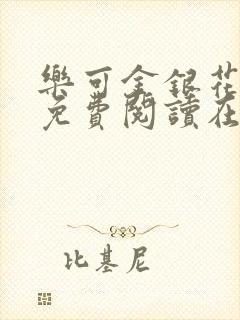 樂可金銀花
免費閱讀在
比基尼